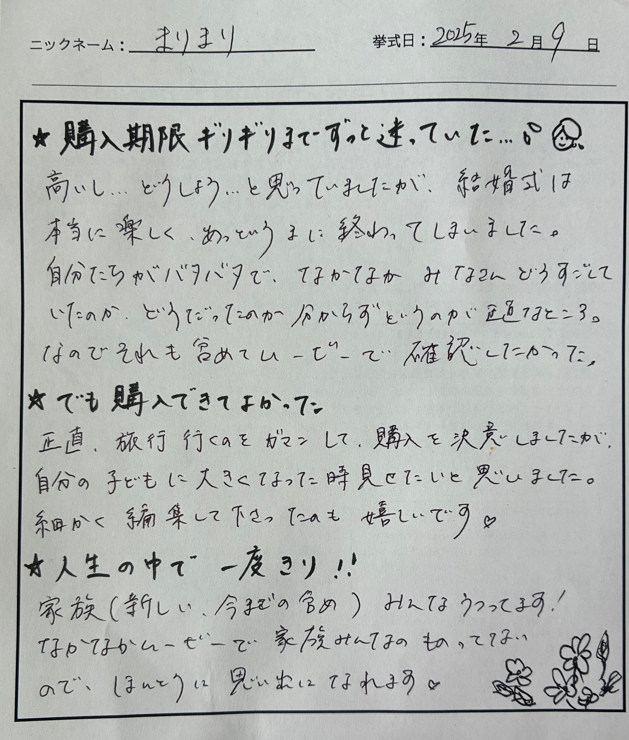 ニックネーム： まりまり 挙式日： 2025年 2月 9日
★購入期限ギリギリまでずっと迷っていた…
高いし…どうしよう…と思っていましたが、結婚式は
本当に楽しく、あっというまに終わってしまいました。
自分たちがバタバタで、なかなかみなさんどうすごして
いたのか、どうだったのか分からずというのが正直なところ。
なのでそれも含めてムービーで確認したかった。
★でも購入できてよかった
正直、旅行行くのをガマンして、購入を決意しましたが、
自分の子どもに大きくなった時見せたいと思いました。
細かく編集して下さったのも嬉しいです♡
★人生の中で一度きり!!
家族(新しい、今までの含め)みんなうつってます!
なかなかムービーで家族みんなのものってない
ので、ほんとうに思い出になれます♡